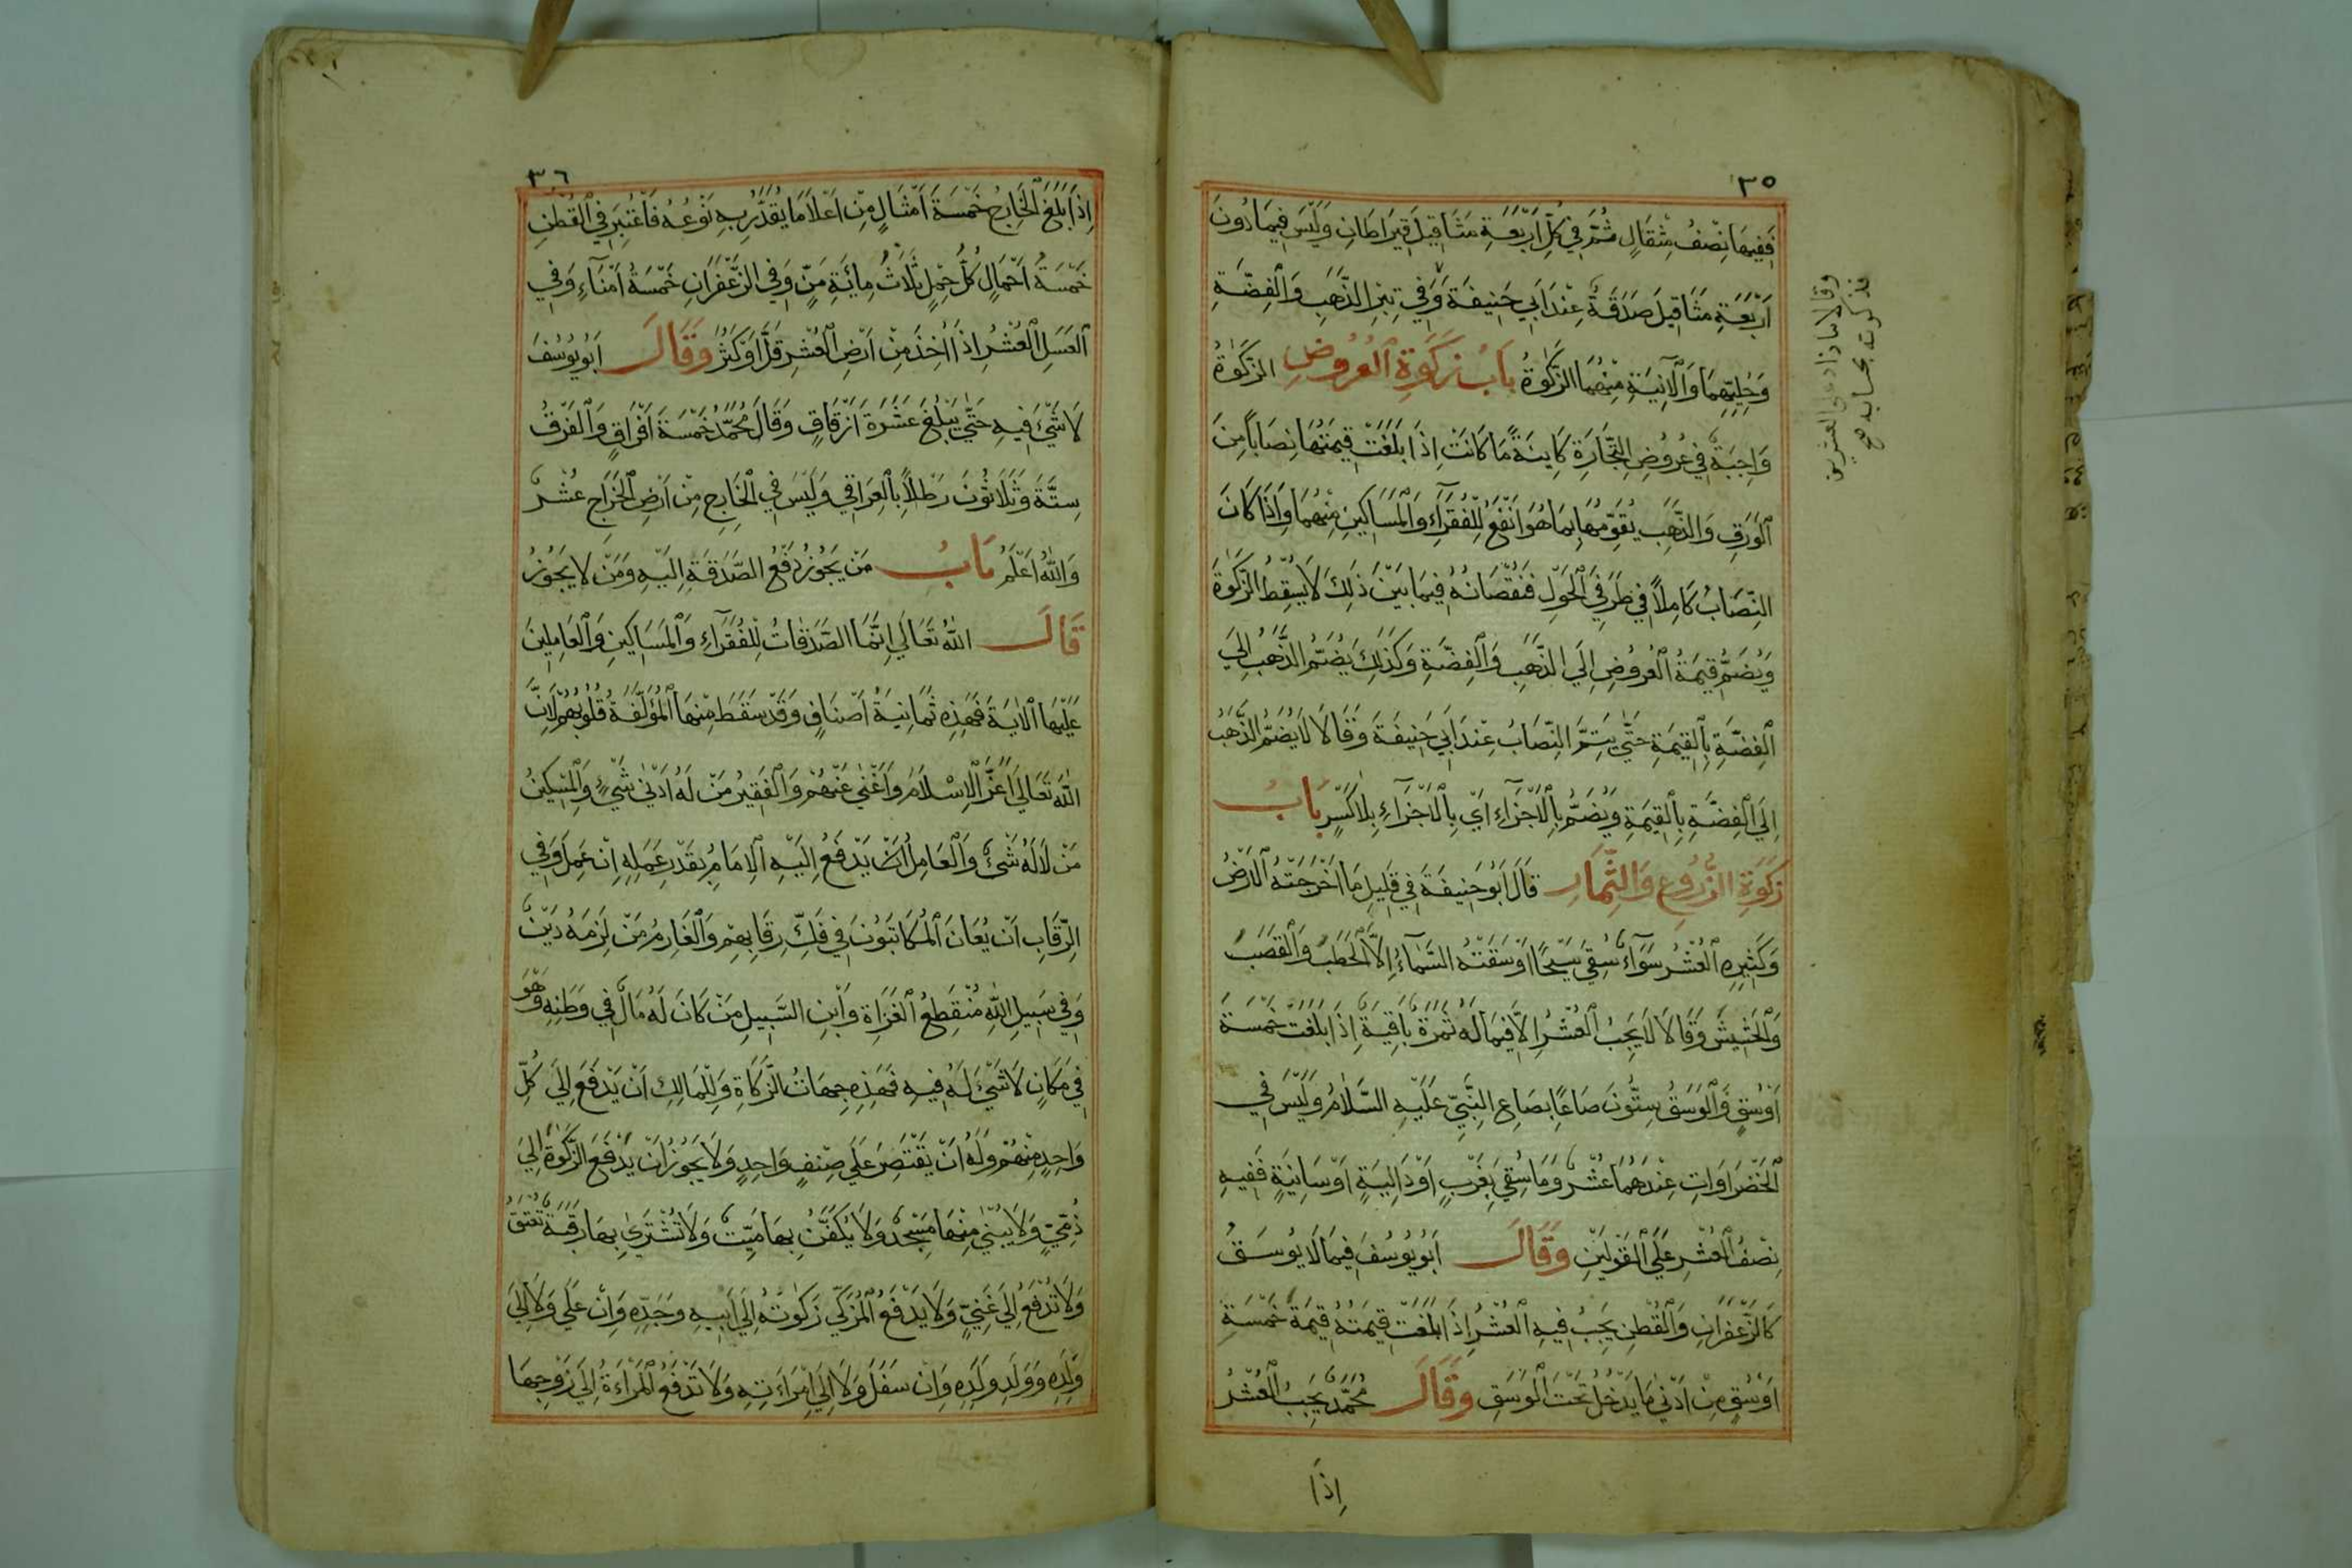 ٣٥
فَفِيهَا نِصْفُ مِثْقَالٍ ثُمَّ فِي كُلِّ اَرْبَعَةِ مَثَاقِيلَ قِيرَاطَانِ وَلَيْسَ فِيمَا دُونَ
اَرْبَعَةِ مَثَاقِيلَ صَدَقَةٌ عِنْدَ اَبِي حَنِيفَةَ وَفِي تِبْرِ الذَّهَبِ وَالْفِضَّةِ
وَحُلِيِّهِمَا وَالْآنِيَةِ مِنْهُمَا الزَّكَوٰةُ بَابُ زَكَوٰةِ الْعُرُوضِ الزَّكَوٰةُ
وَاجِبَةٌ فِي عُرُوضِ التِّجَارَةِ كَايِنَةً مَا كَانَتْ اِذَا بَلَغَتْ قِيمَتُهَا نِصَاباً مِنَ
الْوَرَقِ وَالذَّهَبِ يُقَوِّمُهَا بِمَا هُوَ اَنْفَعُ لِلْفُقَرَآءِ وَالْمَسَاكِينِ مِنْهُمَا وَاِذَا كَانَ
النِّصَابُ كَامِلاً فِي طَرَفَيِ الْحَوْلِ فَنُقْصَانُهُ فِيمَا بَيْنَ ذٰلِكَ لَا يُسْقِطُ الزَّكَوٰةَ
وَيُضَمُّ قِيمَةُ الْعُرُوضِ اِلَي الذَّهَبِ وَالْفِضَّةِ وَكَذٰلِكَ يُضَمُّ الذَّهَبُ اِلَي
الْفِضَّةِ بِالْقِيمَةِ حَتّٰي يَتِمَّ النِّصَابُ عِنْدَ اَبِي حَنِيفَةَ وَقَالَا لَا يُضَمُّ الذَّهَبُ
اِلَي الْفِضَّةِ بِالْقِيمَةِ وَيُضَمُّ بِالْاَجْزَآءِ اَيْ بِالْاَجْزَآءِ بِلَا كَسْرٍ بَابُ
زَكَوٰةِ الزُّرُوعِ وَالثِّمَارِ قَالَ اَبُو حَنِيفَةَ فِي قَلِيلِ مَا اَخْرَجَتْهُ الْاَرْضُ
وَكَثِيرِهِ الْعُشْرُ سَوَآءٌ سُقِيَ سَيْحًا اَوْ سَقَتْهُ السَّمَآءُ اِلَّا الْحَطَبَ وَالْقَصَبَ
وَالْحَشِيشَ وَقَالَا لَا يَجِبُ الْعُشْرُ اِلَّا فِيمَا لَهُ ثَمَرَةٌ بَاقِيَةٌ اِذَا بَلَغَتْ خَمْسَةَ
اَوْسُقٍ وَالْوَسَقُ سِتُّونَ صَاعًا بِصَاعِ النَّبِيِّ عَلَيْهِ السَّلَامُ وَلَيْسَ فِي
الْخَضْرَاوَاتِ عِنْدَهُمَا عُشْرٌ وَمَا سُقِيَ بِغَرْبٍ اَوْ دَالِيَةٍ اَوْ سَانِيَةٍ فَفِيهِ
نِصْفُ الْعُشْرِ عَلَي الْقَوْلَيْنِ وَقَالَ اَبُو يُوسُفَ فِيمَا لَا يُوسَقُ
كَالزَّعْفَرَانِ وَالْقُطْنِ يَجِبُ فِيهِ الْعُشْرُ اِذَا بَلَغَتْ قِيمَتُهُ قِيمَةَ خَمْسَةِ
اَوْسُقٍ مِنْ اَدْنٰي مَا يَدْخُلُ تَحْتَ الْوَسَقِ وَقَالَ مُحَمَّدٌ يَجِبُ الْعُشْرُ
اِذَا
وقالا ما زاد على العشرين
فزكوته بحسابه صح
٣٦
اِذَا بَلَغَ الْخَارِجُ خَمْسَةَ اَمْثَالٍ مِنْ اَعْلَا مَا يُقَدَّرُ بِهِ نَوْعُهُ فَاعْتُبِرَ فِي الْقُطْنِ
خَمْسَةُ اَحْمَالٍ كُلُّ حِمْلٍ ثَلَاثُ مِائَةِ مَنٍّ وَفِي الزَّعْفَرَانِ خَمْسَةُ اَمْنَآءٍ وَفِي
الْعَسَلِ الْعُشْرُ اِذَا اُخِذَ مِنْ اَرْضِ الْعُشْرِ قَلَّ اَوْ كَثُرَ وَقَالَ اَبُو يُوسُفَ
لَا شَيْءَ فِيهِ حَتّٰي يَبْلُغَ عَشَرَةَ اَزْقَاقٍ وَقَالَ مُحَمَّدٌ خَمْسَةَ اَفْرَاقٍ وَالْفَرَقُ
سِتَّةٌ وَثَلَاثُونَ رَطْلاً بِالْعِرَاقِي وَلَيْسَ فِي الْخَارِجِ مِنْ اَرْضِ الْخَرَاجِ عُشْرٌ
وَاللّٰهُ اَعْلَمُ بَابُ مَنْ يَجُوزُ دَفْعُ الصَّدَقَةِ اِلَيْهِ وَمَنْ لَا يَجُوزُ
قَالَ اللّٰهُ تَعَالَي اِنَّمَا الصَّدَقَاتُ لِلْفُقَرَآءِ وَالْمَسَاكِينِ وَالْعَامِلِينَ
عَلَيْهَا الْاٰيَةَ فَهٰذِهِ ثَمَانِيَةُ اَصْنَافٍ وَقَدْ سَقَطَ مِنْهَا الْمُؤَلَّفَةُ قُلُوبُهُمْ لِاَنَّ
اللّٰهَ تَعَالَي اَعَزَّ الْاِسْلَامَ وَاَغْنٰي عَنْهُمْ وَالْفَقِيرُ مَنْ لَهُ اَدْنٰي شَيْءٍ وَالْمِسْكِينُ
مَنْ لَا لَهُ شَيْءٌ وَالْعَامِلُ اَنْ يَدْفَعَ اِلَيْهِ الْاِمَامُ بِقَدْرِ عَمَلِهِ اِنْ عَمِلَ وَفِي
الرِّقَابِ اَنْ يُعَانَ الْمُكَاتَبُونَ فِي فَكِّ رِقَابِهِمْ وَالْغَارِمُ مَنْ لَزِمَهُ دَيْنٌ
وَفِي سَبِيلِ اللّٰهِ مُنْقَطِعُ الْغَزَاةِ وَابْنِ السَّبِيلِ مَنْ كَانَ لَهُ مَالٌ فِي وَطَنِهِ وَهُوَ
فِي مَكَانٍ لَا شَيْءَ لَهُ فِيهِ فَهٰذِهِ جِهَاتُ الزَّكَاةِ وَلِلْمَالِكِ اَنْ يَدْفَعَ اِلَي كُلِّ
وَاحِدٍ مِنْهُمْ وَلَهُ اَنْ يَقْتَصِرَ عَلَي صِنْفٍ وَاحِدٍ وَلَا يَجُوزُ اَنْ يَدْفَعَ الزَّكَوٰةَ اِلَي
ذِمِّيٍّ وَلَا يُبْنٰي مِنْهَا مَسْجِدٌ وَلَا يُكَفَّنُ بِهَا مَيِّتٌ وَلَا تُشْتَرٰي بِهَا رَقَبَةٌ تُعْتَقُ
وَلَا تُدْفَعُ اِلَي غَنِيٍّ وَلَا يَدْفَعُ الْمُزَكِّي زَكَوٰتَهُ اِلَي اَبِيهِ وَجَدِّهِ وَاِنْ عَلَي وَلَا اِلَي
وَلَدِهِ وَوَلَدِ وَلَدِهِ وَاِنْ سَفَلَ وَلَا اِلَي اِمْرَاَتِهِ وَلَا تَدْفَعُ الْمَرْاَةُ اِلَي زَوْجِهَا